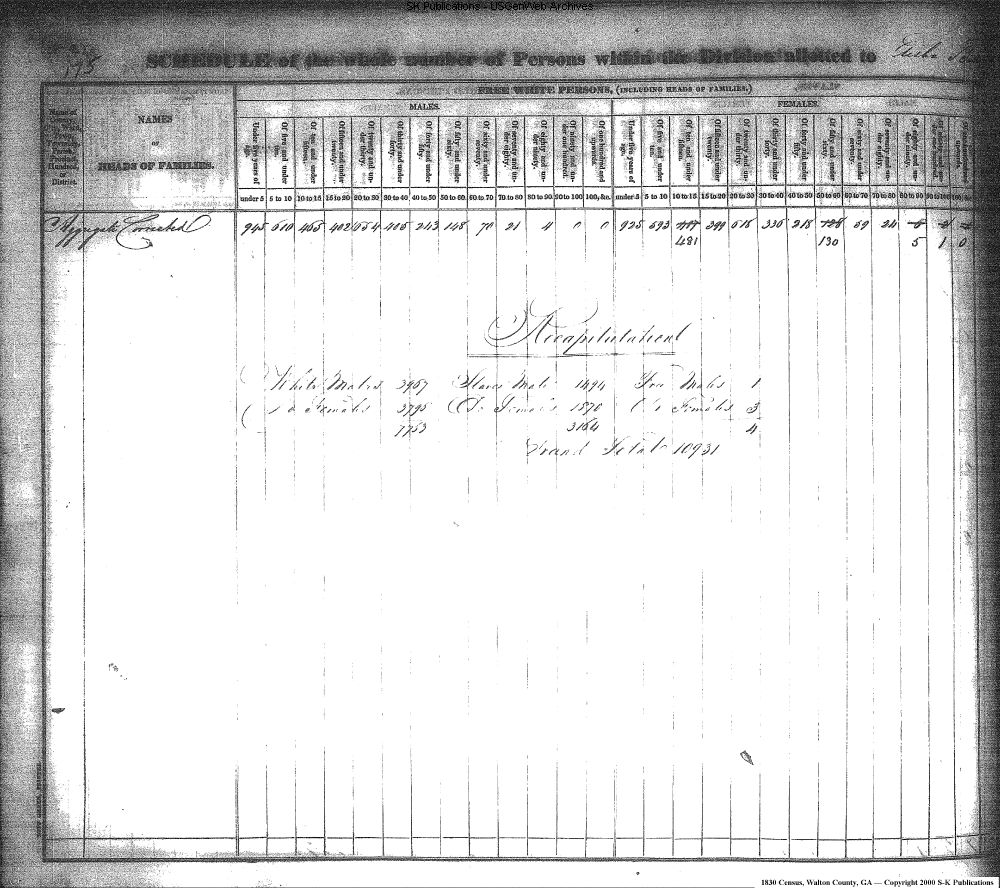 SK Publications - USGenWeb Archives
195
SCHEDULE of the whole number of Persons within the Division allotted to
FREE WHITE PERSONS, (INCLUDING HEADS OF FAMILIES.)
MALES. FEMALES.
Name of County, City, Ward, Town, Township, Parish, Precinct, Hundred, or District.
NAMES
OF
HEADS OF FAMILIES.
Under five years of age. Of five and under ten. Of ten and under fifteen. Of fifteen and under twenty. Of twenty and under thirty. Of thirty and under forty. Of forty and under fifty. Of fifty and under sixty. Of sixty and under seventy. Of seventy and under eighty. Of eighty and under ninety. Of ninety and under one hundred. Of one hundred and upwards. Under five years of age. Of five and under ten. Of ten and under fifteen. Of fifteen and under twenty. Of twenty and under thirty. Of thirty and under forty. Of forty and under fifty. Of fifty and under sixty. Of sixty and under seventy. Of seventy and under eighty. Of eighty and under ninety.
under 5 5 to 10 10 to 15 15 to 20 20 to 30 30 to 40 40 to 50 50 to 60 60 to 70 70 to 80 80 to 90 90 to 100 100, &c. under 5 5 to 10 10 to 15 15 to 20 20 to 30 30 to 40 40 to 50 50 to 60 60 to 70 70 to 80 80 to 90 90 to 100
Aggregate Corrected 945 610 465 402 654 405 243 148 70 21 4 0 0 925 593 399 616 336 218 59 24
481 130 5 1 0
Recapitulation
White Males 3967 Slaves Male 1494 Free Males 1
Do Females 3795 Do Females 1670 Do Females 3
7763 3164 4
Grand Total 10931
1830 Census, Walton County, GA — Copyright 2000 S-K Publications